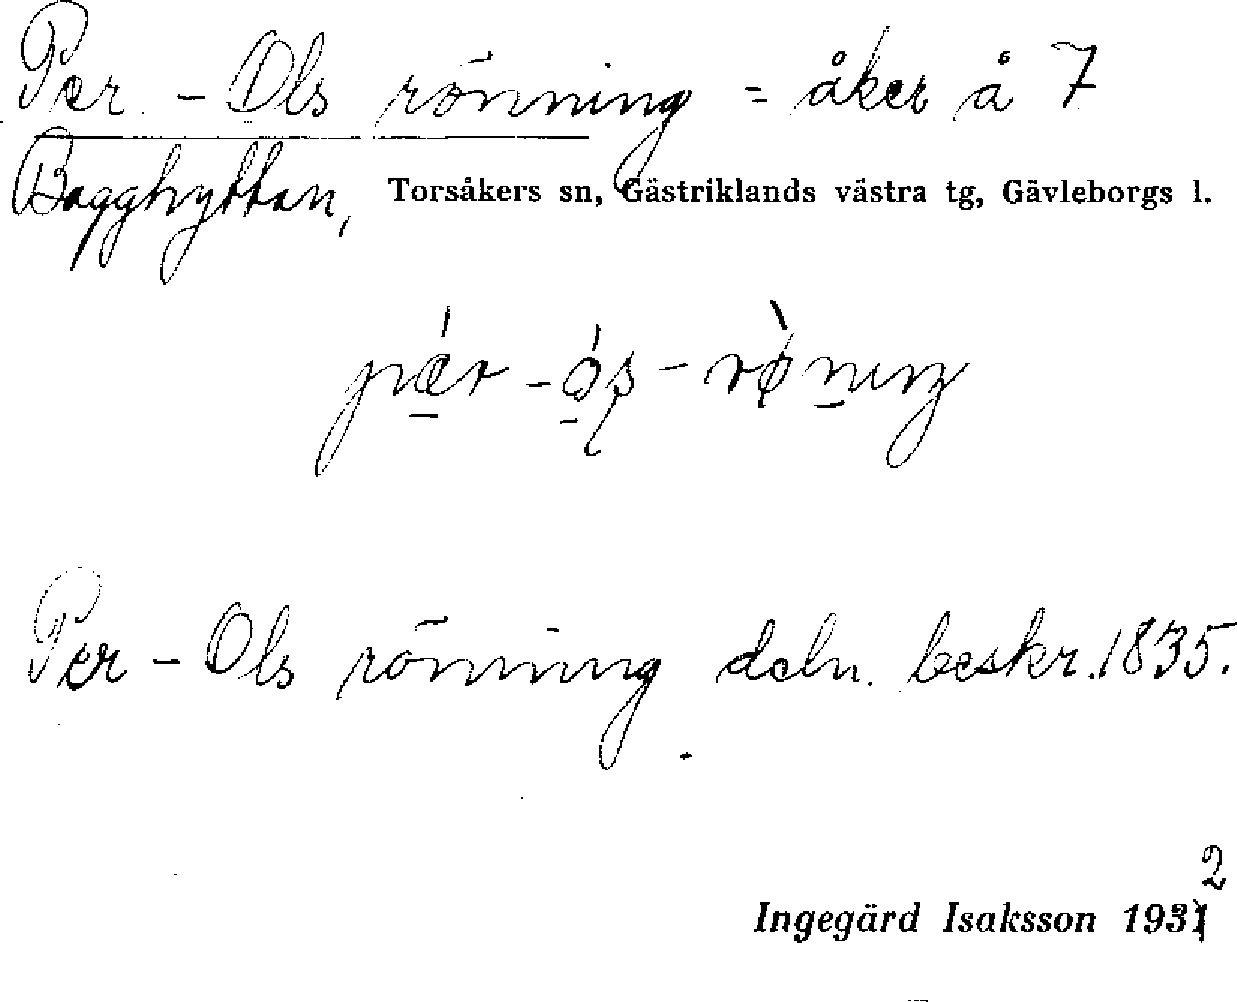 Per-Ols rönning = åker å 7
Bagghyttan, Torsåkers sn, Gästriklands västra tg, Gävleborgs l.
pǽr-ó̱ʂ-rø̀nıŋ
Per-Ols rönning deln. beskr. 1835.
Ingegärd Isaksson 1932